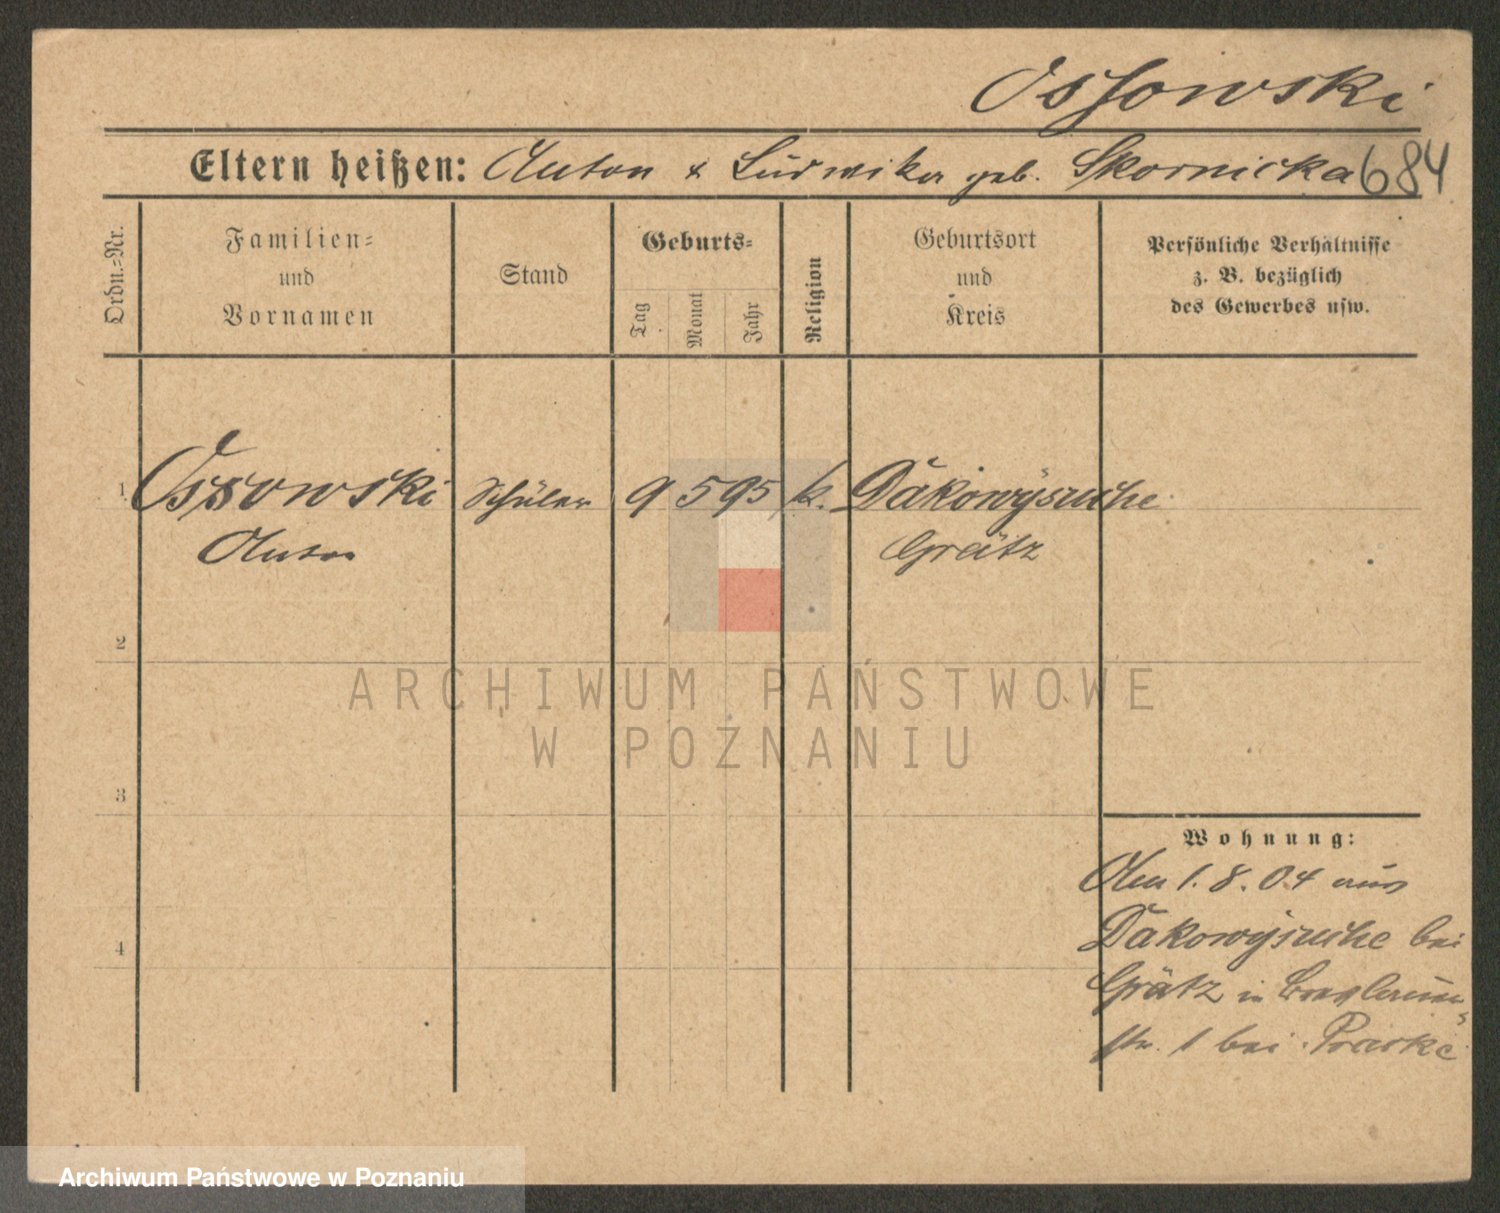 Ossowski
Eltern heißen: Anton & Ludwika geb. Skornicka 684
Ordn.-Nr.
Familien- und Vornamen
Stand
Geburts-
Tag
Monat
Jahr
Religion
Geburtsort und Kreis
Persönliche Verhältnisse z. B. bezüglich des Gewerbes usw.
1 Ossowski Schüler 9 5 95 k. Dakowysuche
Anton Grätz
2
ARCHIWUM PAŃSTWOWE
W POZNANIU
3
Wohnung:
Am 1.8.04 aus
4 Dakowysuche bei
Grätz in Breslauer-
str. 1 bei
Archiwum Państwowe w Poznaniu